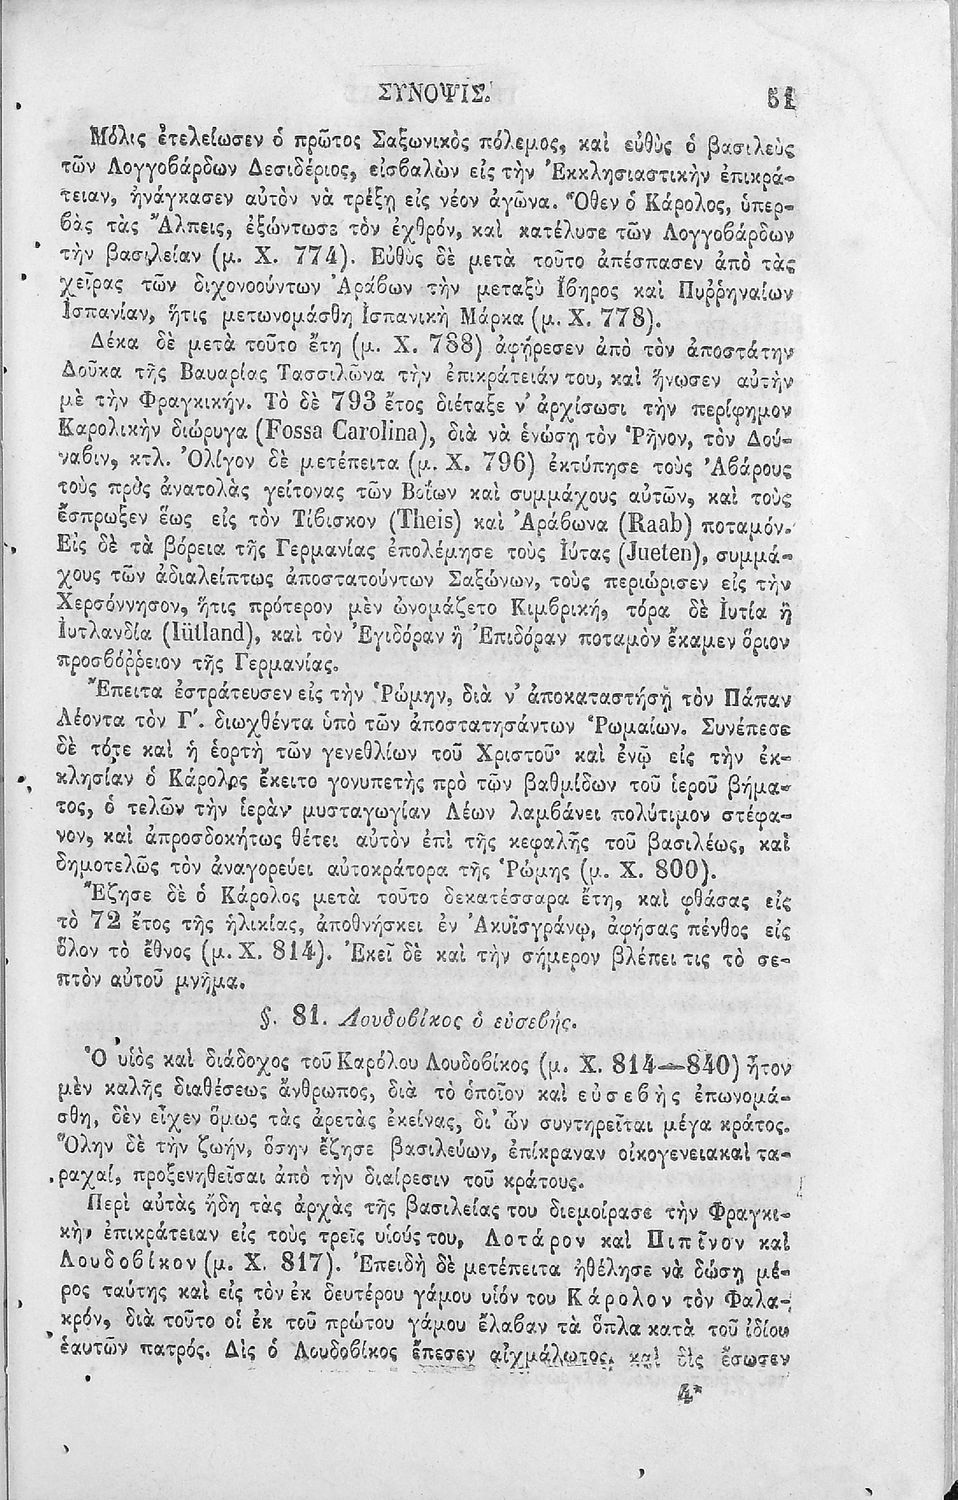 ΣΥΝΟΨΙΣ.
51
Μόλις ἐτελείωσεν ὁ πρῶτος Σαξωνικὸς πόλεμος, καὶ εὐθὺς ὁ βασιλεὺς
τῶν Λογγοβάρδων Δεσιδέριος, εἰσβαλὼν εἰς τὴν Ἐκκλησιαστικὴν ἐπικρά-
τειαν, ἠνάγκασεν αὐτὸν νὰ τρέξῃ εἰς νέον ἀγῶνα. Ὅθεν ὁ Κάρολος, ὑπερ-
βὰς τὰς Ἄλπεις, ἐξώντωσε τὸν ἐχθρόν, καὶ κατέλυσε τῶν Λογγοβάρδων
τὴν βασιλείαν (μ. Χ. 774). Εὐθὺς δὲ μετὰ τοῦτο ἀπέσπασεν ἀπὸ τὰς
χεῖρας τῶν διχονοούντων Ἀράβων τὴν μεταξὺ Ἴβηρος καὶ Πυῤῥηναίων
Ἰσπανίαν, ἥτις μετωνομάσθη Ἰσπανικὴ Μάρκα (μ. Χ. 778).
Δέκα δὲ μετὰ τοῦτο ἔτη (μ. Χ. 788) ἀφῄρεσεν ἀπὸ τὸν ἀποστάτην
Δοῦκα τῆς Βαυαρίας Τασσιλῶνα τὴν ἐπικράτειάν του, καὶ ἥνωσεν αὐτὴν
μὲ τὴν Φραγκικήν. Τὸ δὲ 793 ἔτος διέταξε ν' ἀρχίσωσι τὴν περίφημον
Καρολικὴν διώρυγα (Fossa Carolina), διὰ νὰ ἑνώσῃ τὸν Ῥῆνον, τὸν Δού-
ναβιν, κτλ. Ὀλίγον δὲ μετέπειτα (μ. Χ. 796) ἐκτύπησε τοὺς Ἀβάρους
τοὺς πρὸς ἀνατολὰς γείτονας τῶν Βοΐων καὶ συμμάχους αὐτῶν, καὶ τοὺς
ἔσπρωξεν ἕως εἰς τὸν Τίβισκον (Theis) καὶ Ἀράβωνα (Raab) ποταμόν.
Εἰς δὲ τὰ βόρεια τῆς Γερμανίας ἐπολέμησε τοὺς Ἰύτας (Jueten), συμμά-
χους τῶν ἀδιαλείπτως ἀποστατούντων Σαξώνων, τοὺς περιώρισεν εἰς τὴν
Χερσόννησον, ἥτις πρότερον μὲν ὠνομάζετο Κιμβρική, τόρα δὲ Ἰυτία ἢ
Ἰυτλανδία (Iütland), καὶ τὸν Ἐγιδόραν ἢ Ἐπιδόραν ποταμὸν ἔκαμεν ὅριον
προσβόῤῥειον τῆς Γερμανίας.
Ἔπειτα ἐστράτευσεν εἰς τὴν Ῥώμην, διὰ ν' ἀποκαταστήσῃ τὸν Πάπαν
Λέοντα τὸν Γ'. διωχθέντα ὑπὸ τῶν ἀποστατησάντων Ῥωμαίων. Συνέπεσε
δὲ τότε καὶ ἡ ἑορτὴ τῶν γενεθλίων τοῦ Χριστοῦ· καὶ ἐνῷ εἰς τὴν ἐκ-
κλησίαν ὁ Κάρολος ἔκειτο γονυπετὴς πρὸ τῶν βαθμίδων τοῦ ἱεροῦ βήμα-
τος, ὁ τελῶν τὴν ἱερὰν μυσταγωγίαν Λέων λαμβάνει πολύτιμον στέφα-
νον, καὶ ἀπροσδοκήτως θέτει αὐτὸν ἐπὶ τῆς κεφαλῆς τοῦ βασιλέως, καὶ
δημοτελῶς τὸν ἀναγορεύει αὐτοκράτορα τῆς Ῥώμης (μ. Χ. 800).
Ἔζησε δὲ ὁ Κάρολος μετὰ τοῦτο δεκατέσσαρα ἔτη, καὶ φθάσας εἰς
τὸ 72 ἔτος τῆς ἡλικίας, ἀποθνήσκει ἐν Ἀκυϊσγράνῳ, ἀφήσας πένθος εἰς
ὅλον τὸ ἔθνος (μ. Χ. 814). Ἐκεῖ δὲ καὶ τὴν σήμερον βλέπει τις τὸ σε-
πτὸν αὐτοῦ μνῆμα.
§. 81. Λουδοβίκος ὁ εὐσεβής.
Ὁ υἱὸς καὶ διάδοχος τοῦ Καρόλου Λουδοβίκος (μ. Χ. 814—840) ἦτον
μὲν καλῆς διαθέσεως ἄνθρωπος, διὰ τὸ ὁποῖον καὶ εὐσεβὴς ἐπωνομά-
σθη, δὲν εἶχεν ὅμως τὰς ἀρετὰς ἐκείνας, δι' ὧν συντηρεῖται μέγα κράτος.
Ὅλην δὲ τὴν ζωήν, ὅσην ἔζησε βασιλεύων, ἐπίκραναν οἰκογενειακαὶ τα-
ραχαί, προξενηθεῖσαι ἀπὸ τὴν διαίρεσιν τοῦ κράτους.
Περὶ αὐτὰς ἤδη τὰς ἀρχὰς τῆς βασιλείας του διεμοίρασε τὴν Φραγκι-
κὴν ἐπικράτειαν εἰς τοὺς τρεῖς υἱούς του, Λοτάρον καὶ Πιπῖνον καὶ
Λουδοβίκον (μ. Χ. 817). Ἐπειδὴ δὲ μετέπειτα ἠθέλησε νὰ δώσῃ μέ-
ρος ταύτης καὶ εἰς τὸν ἐκ δευτέρου γάμου υἱόν του Κάρολον τὸν Φαλα-
κρόν, διὰ τοῦτο οἱ ἐκ τοῦ πρώτου γάμου ἔλαβαν τὰ ὅπλα κατὰ τοῦ ἰδίου
ἑαυτῶν πατρός. Δὶς ὁ Λουδοβίκος ἔπεσεν αἰχμάλωτος, καὶ δὶς ἔσωσεν
4*